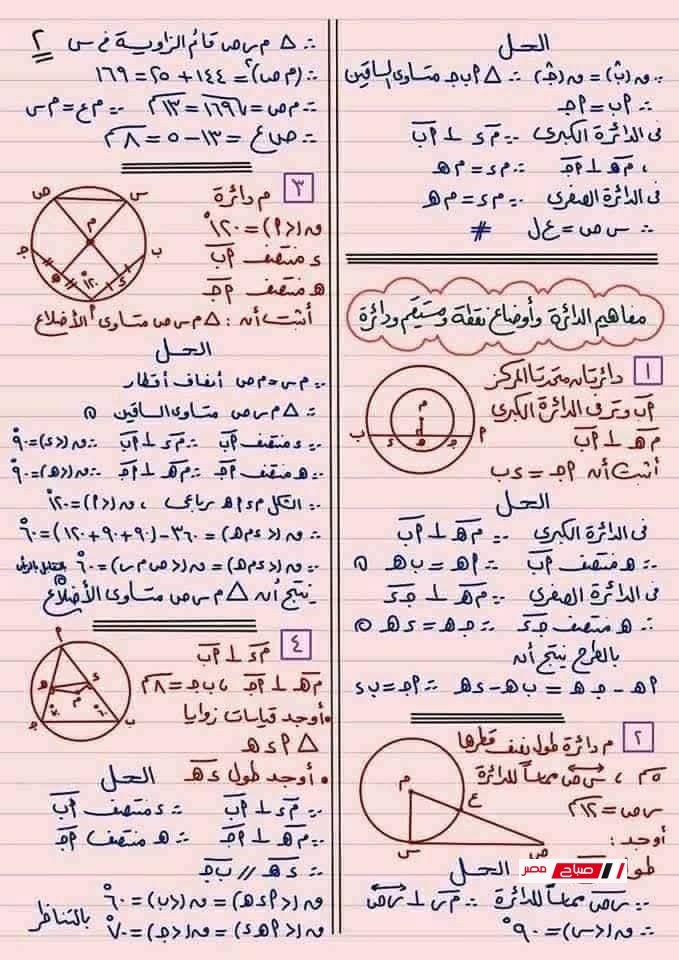 الحل
∵ ق(بˆ) = ق(جˆ) ∴ △ أ ب ج متساوى الساقين
∴ أب = أج
فى الدائرة الكبرى ∵ م‌د ⊥ أب
، م‌هـ ⊥ أج ∴ م‌د = م‌هـ
فى الدائرة الصغرى ∵ م‌د = م‌هـ
∴ س ص = ع ل #
مفاهيم الدائرة وأوضاع نقطة ومستقيم ودائرة
١ دائرتان متحدتا المركز
أب وتر فى الدائرة الكبرى
م‌هـ ⊥ أب
أثبت أن أج = د ب
م
أ ج هـ د ب
الحل
فى الدائرة الكبرى ∵ م‌هـ ⊥ أب
∴ هـ منتصف أب ∴ أهـ = ب هـ ①
فى الدائرة الصغرى ∵ م‌هـ ⊥ ج‌د
∴ هـ منتصف ج‌د ∴ ج هـ = د هـ ②
بالطرح ينتج أن
أهـ - ج هـ = ب هـ - د هـ ∴ أج = ب د
٢ م دائرة طول نصف قطرها
٥ سم ، س ص مماساً للدائرة
س ص = ١٢ سم
أوجد :
طول
م
ع
س ص
الحل
∵ س ص مماساً للدائرة ∴ م س ⊥ س ص
∴ ق(∠س) = ٩٠°
صباح مصر
٢
∴ △ م س ص قائم الزاوية فى س
∴ (م ص)² = ١٤٤ + ٢٥ = ١٦٩
∴ م ص = √١٦٩ = ١٣ سم ∵ م ع = م س
∴ ص ع = ١٣ - ٥ = ٨ سم
٣ م دائرة
ق(∠أ) = ١٢٠°
د منتصف أب
هـ منتصف أج
أثبت أن : △ م س ص متساوى الأضلاع
ص س
م
ج ب
هـ ١٢٠° د
أ
الحل
∵ م س = م ص أنصاف أقطار
∴ △ م س ص متساوى الساقين ①
∵ د منتصف أب ∴ م‌د ⊥ أب ∴ ق(∠د) = ٩٠°
∵ هـ منتصف أج ∴ م‌هـ ⊥ أج ∴ ق(∠هـ) = ٩٠°
∵ الشكل م د أ هـ رباعى ، ق(∠أ) = ١٢٠°
∴ ق(∠د م هـ) = ٣٦٠ - (٩٠ + ٩٠ + ١٢٠) = ٦٠°
∵ ق(∠د م هـ) = ق(∠ص م س) = ٦٠° بالتقابل بالرأس ②
ينتج أن △ م س ص متساوى الأضلاع
٤ م‌د ⊥ أب
م‌هـ ⊥ أج ، ب ج = ٨ سم
• أوجد قياسات زوايا
△ أ د هـ
• أوجد طول د هـ
أ
هـ د
م
ج ٧٠° ٦٠° ب
الحل
∵ م‌د ⊥ أب ∴ د منتصف أب
∵ م‌هـ ⊥ أج ∴ هـ منتصف أج
∴ د هـ // ب ج
∴ ق(∠أ د هـ) = ق(∠ب) = ٦٠°
ق(∠أ هـ د) = ق(∠ج) = ٧٠° بالتناظر